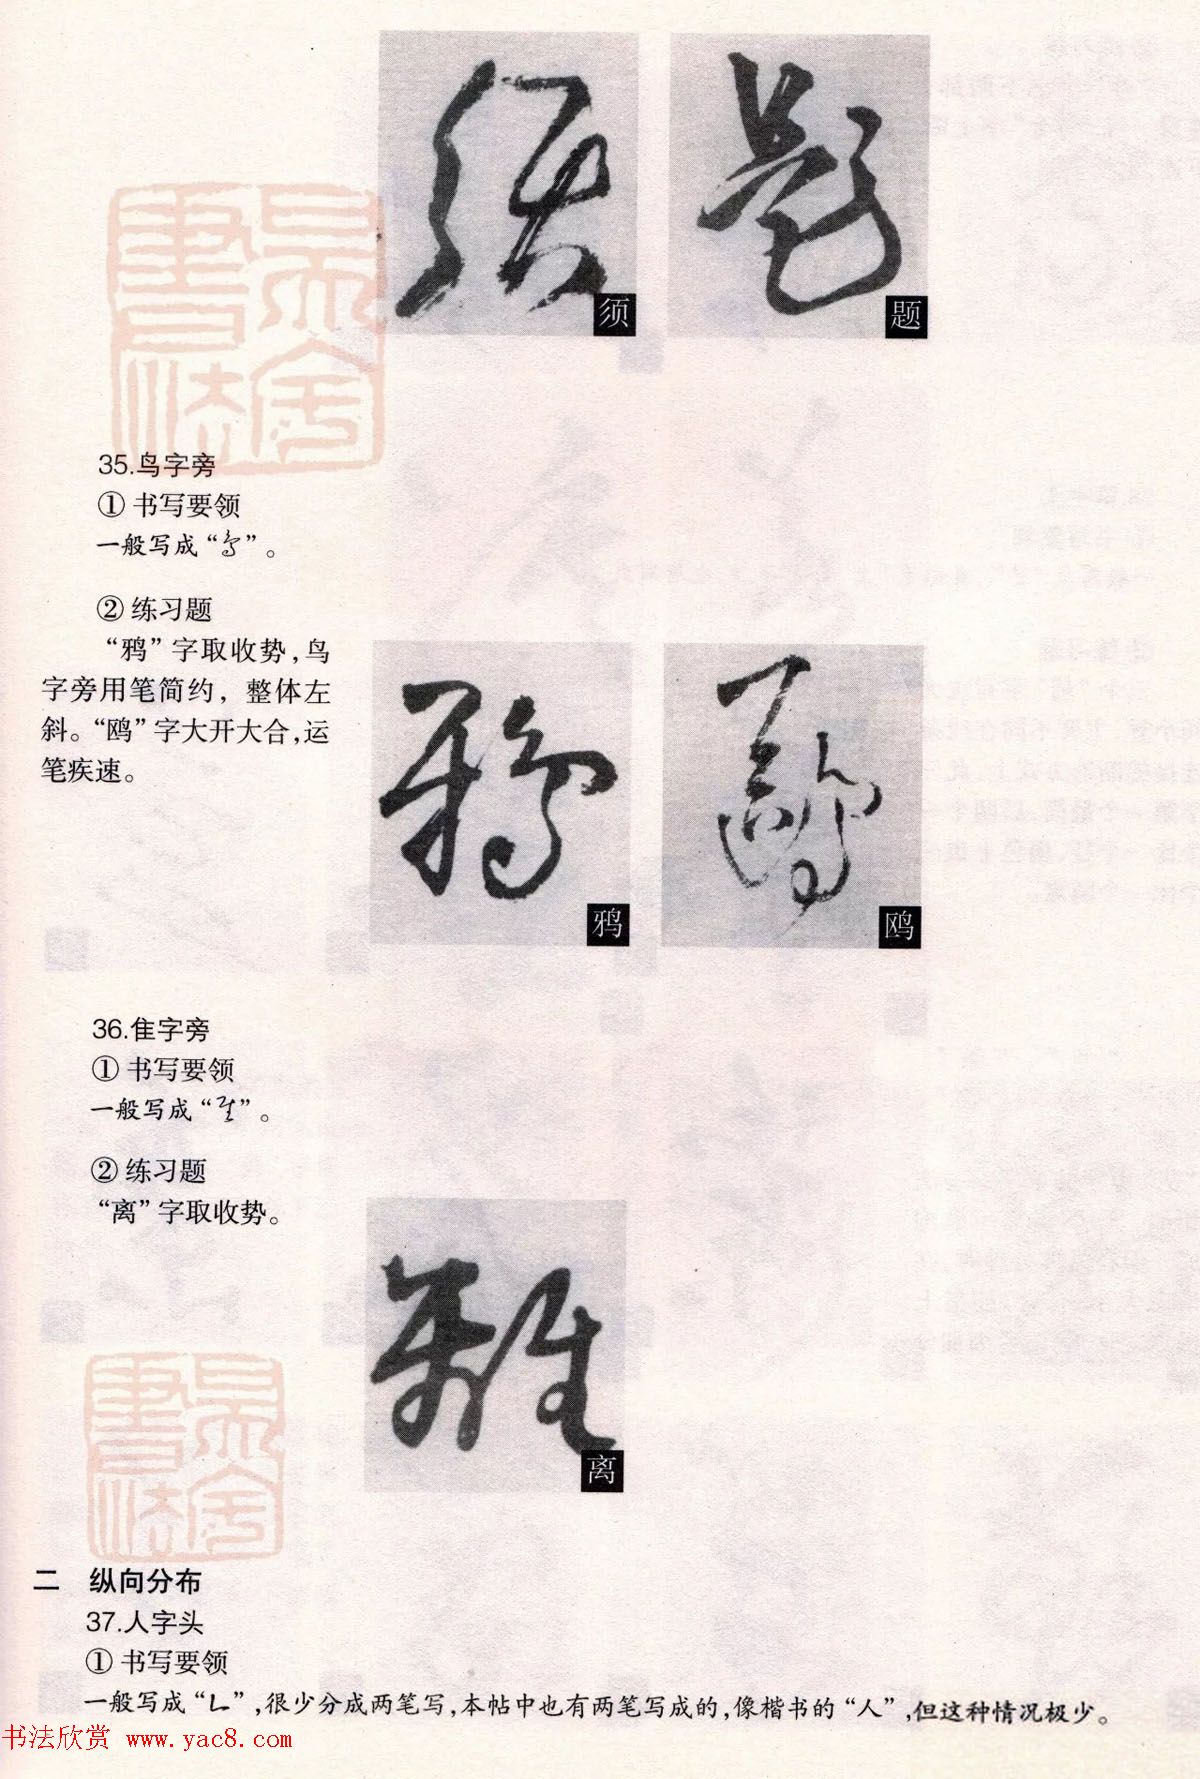 须
题
35.鸟字旁
① 书写要领
一般写成“ ”。
② 练习题
“鸦”字取收势,鸟
字旁用笔简约，整体左
斜。“鸥”字大开大合,运
笔疾速。
鸦
鸥
36.隹字旁
① 书写要领
一般写成“ ”。
② 练习题
“离”字取收势。
离
二 纵向分布
37.人字头
① 书写要领
一般写成“ ”,很少分成两笔写,本帖中也有两笔写成的,像楷书的“人”,但这种情况极少。
书法欣赏 www.yac8.com